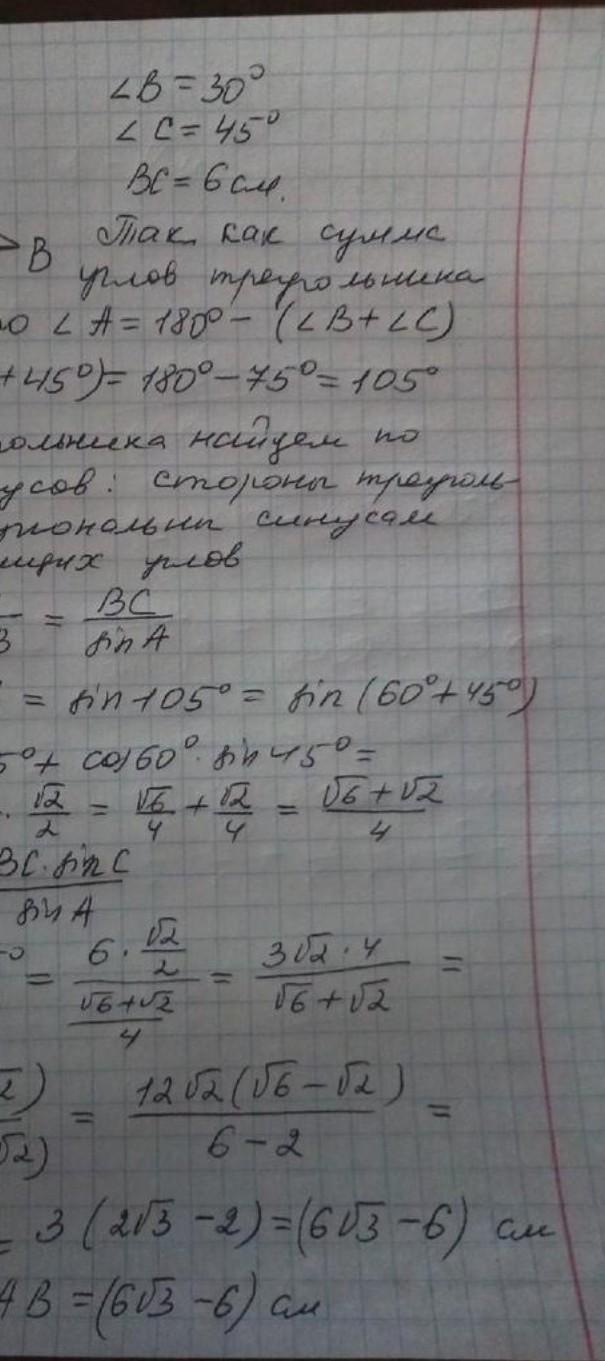 ∠B = 30°
∠C = 45°
BC = 6 см.
B Так как сумма
углов треугольника
∠A = 180° − (∠B + ∠C)
+ 45°) = 180° − 75° = 105°
ольника найдем по
усов: стороны треуголь-
циональны синусам
ащих углов
B = BC / sin A
= sin 105° = sin (60° + 45°)
5° + cos 60° · sin 45° =
· √2/2 = √6/4 + √2/4 = (√6 + √2)/4
BC · sin C / sin A
= (6 · √2/2) / ((√6 + √2)/4) = (3√2 · 4)/(√6 + √2) =
√2) / √2) = 12√2(√6 − √2)/(6 − 2) =
= 3 (2√3 − 2) = (6√3 − 6) см
AB = (6√3 − 6) см